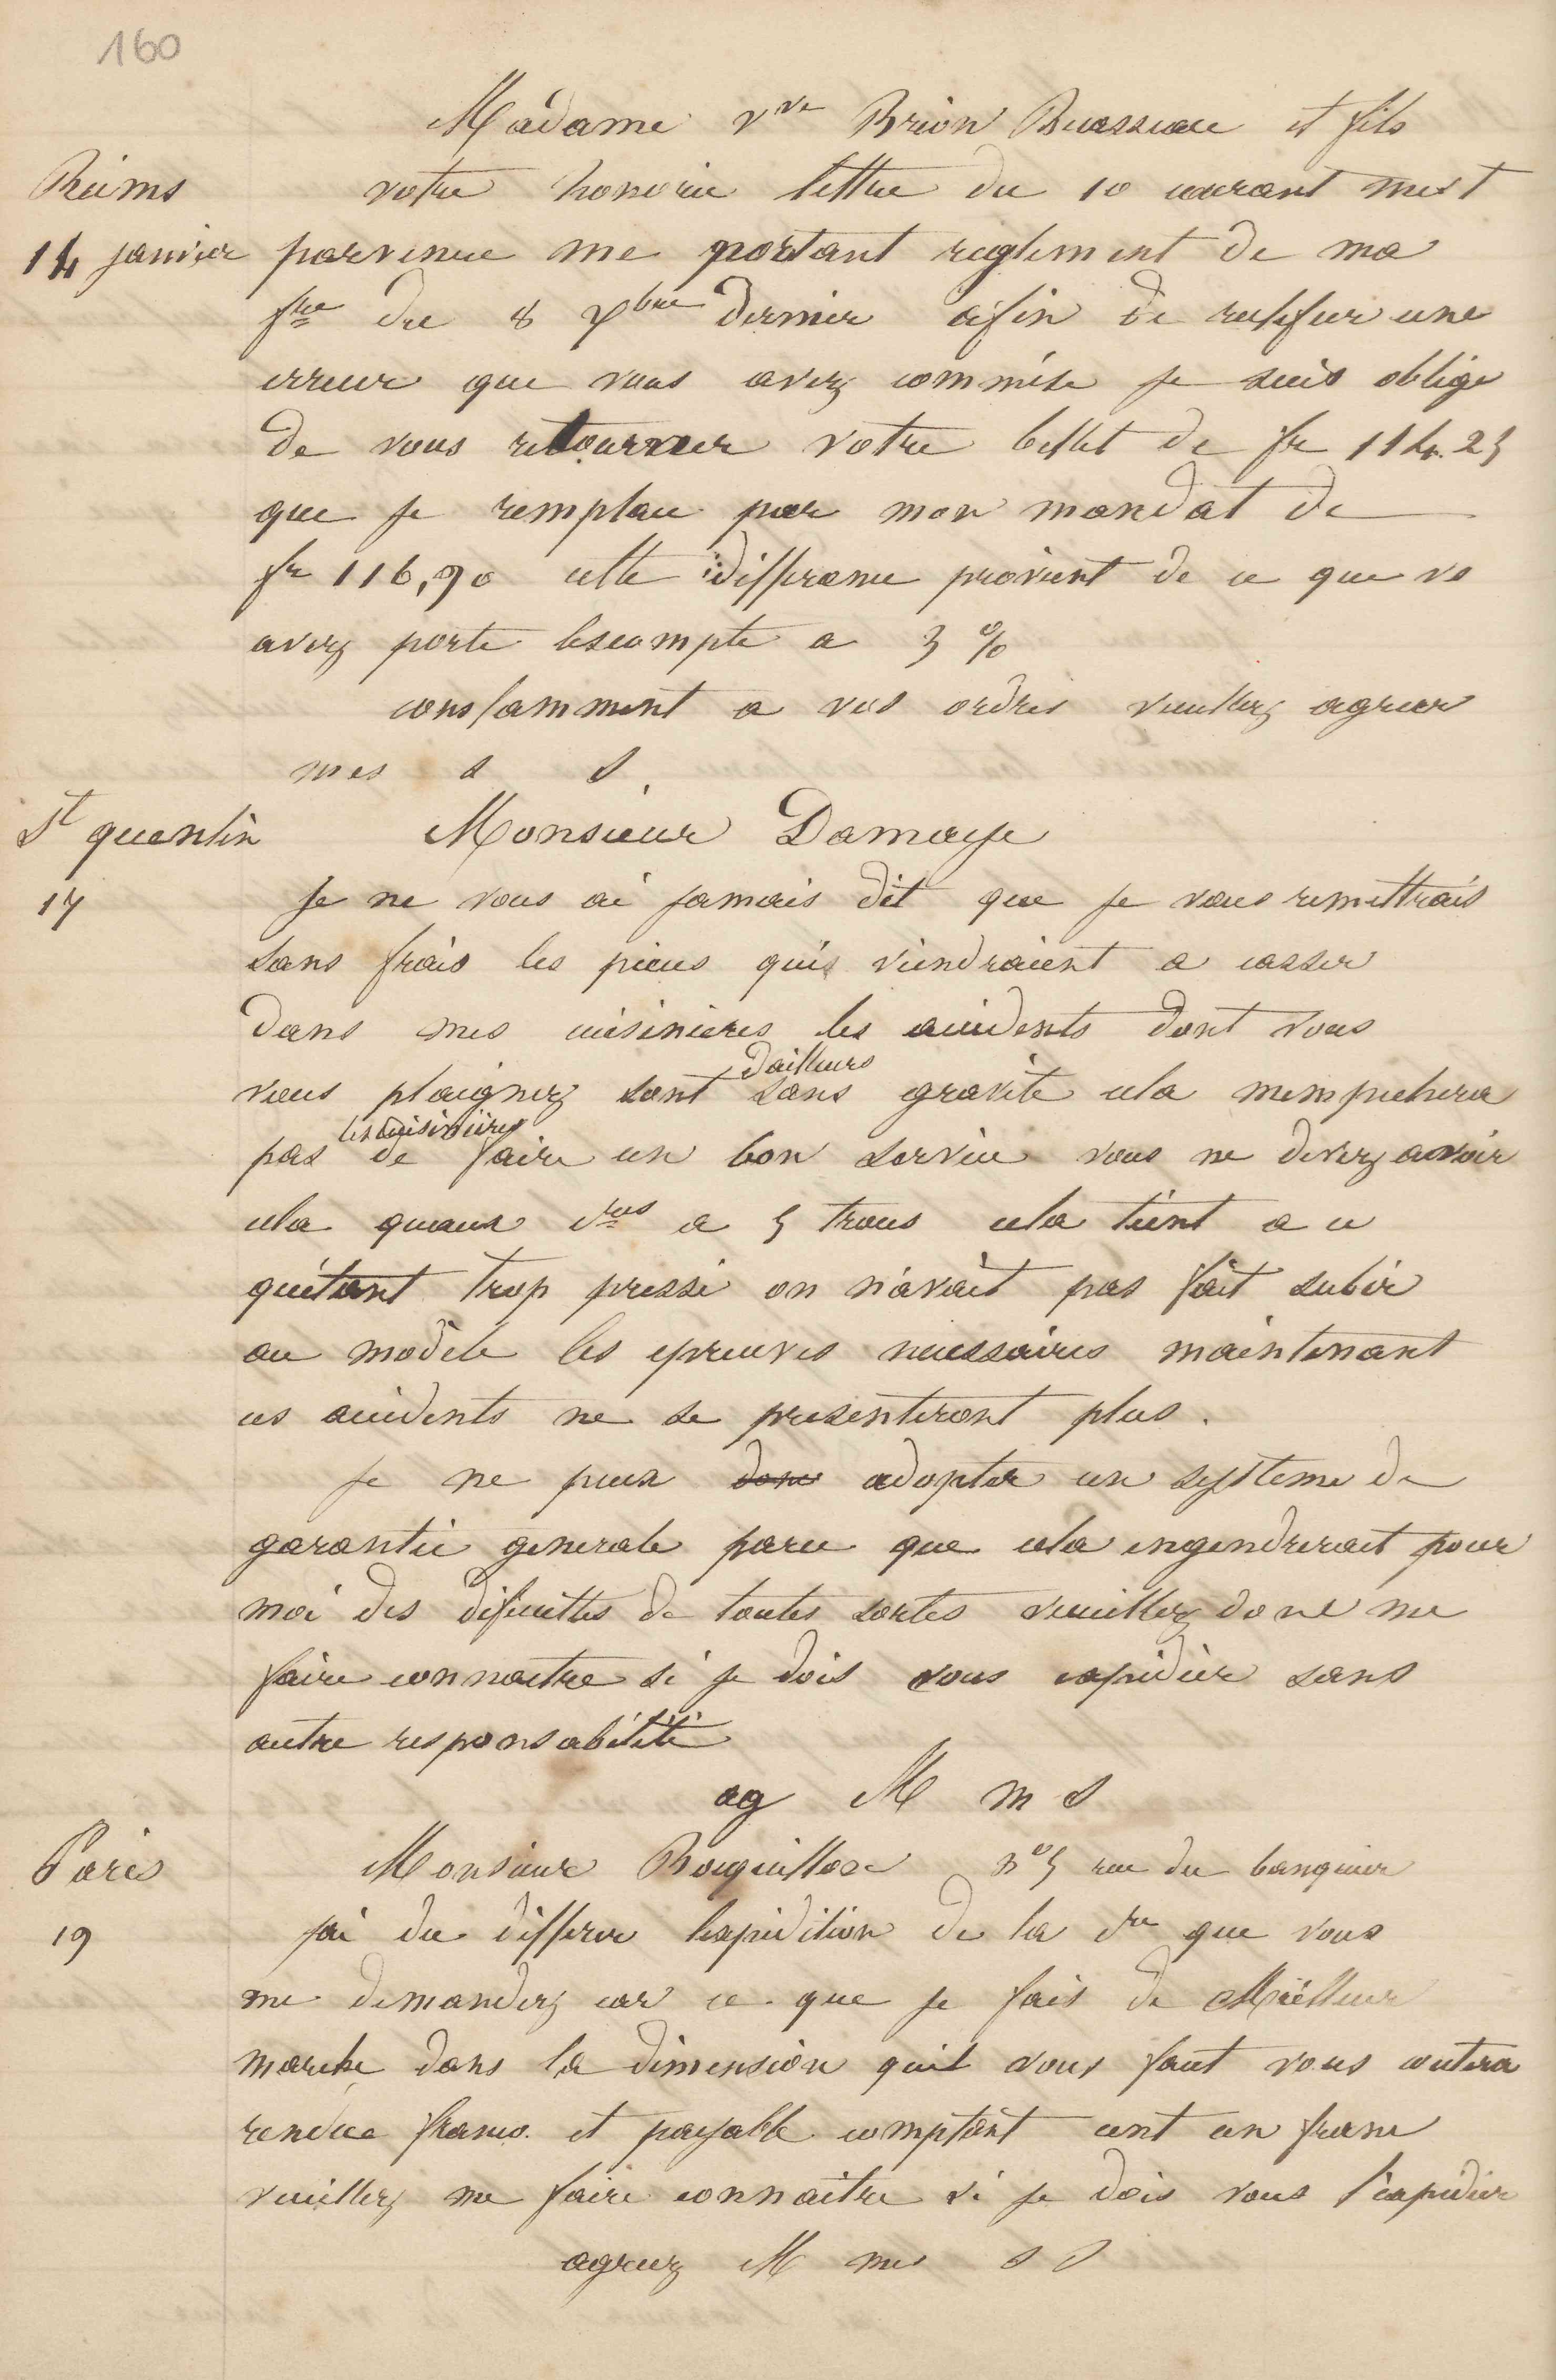 160
Madame Vve Brion Buasseau et fils
Reims
votre honorée lettre du 10 courant mest
14 janvier
parvenue me portant reglement de ma
fre du 8 Xbre dernier afin de
une
erreur que vous avez commise je suis obligé
de vous retourner votre billet de fr 114.25
que je remplace par mon mandat de
fr 116,90 cette differance provient de ce que vs
avez porte lescompte a 3 %
constamment a vos ordres veuillez agreer
mes s S.
St quentin
Monsieur Damaye
17
Je ne vous ai jamais dit que je vous remettrais
sans frais les pieces quis viendraient a casser
dans mes cuisinieres les accidents dont vous
dailleurs
vous plaignez sont sans gravité cela mempechera
les cuisinieres
pas de faire un bon service vous ne devez avoir
cela quaux cres a 5 trous cela tient a ce
quétant trop pressé on navait pas fait subir
au modele les epreuves necessaires maintenant
ces accidents ne se presenteront plus.
je ne peux donc adopter un systeme de
garantie generale parce que cela engendrerait pour
moi des dificultes de toutes sortes veuillez donc me
faire connaitre si je dois vous expedier sans
autre responsabilité
ag M m S
Paris
Monsieur Bouquillon n° 5 rue du banquier
19
jai du differer lexpedition de la cre que vous
me demandez car ce que je fais de Meilleur
marche dans la dimension quil vous faut vous coutera
rendue franco et payable comptant cent un franc
veuillez me faire connaitre si je dois vous l'expedier
agreez M mes s S